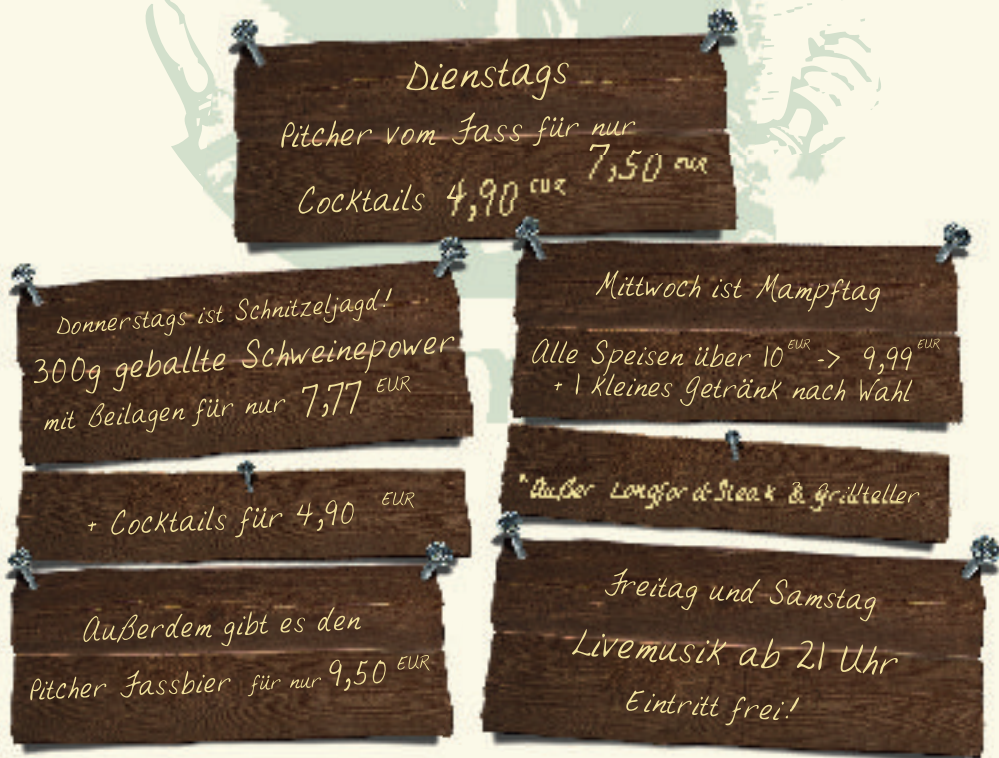 Dienstags
Pitcher vom Fass für nur
7,50 EUR
Cocktails 4,90 EUR
Donnerstags ist Schnitzeljagd!
300g geballte Schweinepower
mit Beilagen für nur 7,77 EUR
+ Cocktails für 4,90 EUR
Außerdem gibt es den
Pitcher Fassbier für nur 9,50 EUR
Mittwoch ist Mampftag
Alle Speisen über 10 EUR -> 9,99 EUR
+ 1 kleines Getränk nach Wahl
*Außer Longford-Steak & Grillteller
Freitag und Samstag
Livemusik ab 21 Uhr
Eintritt frei!